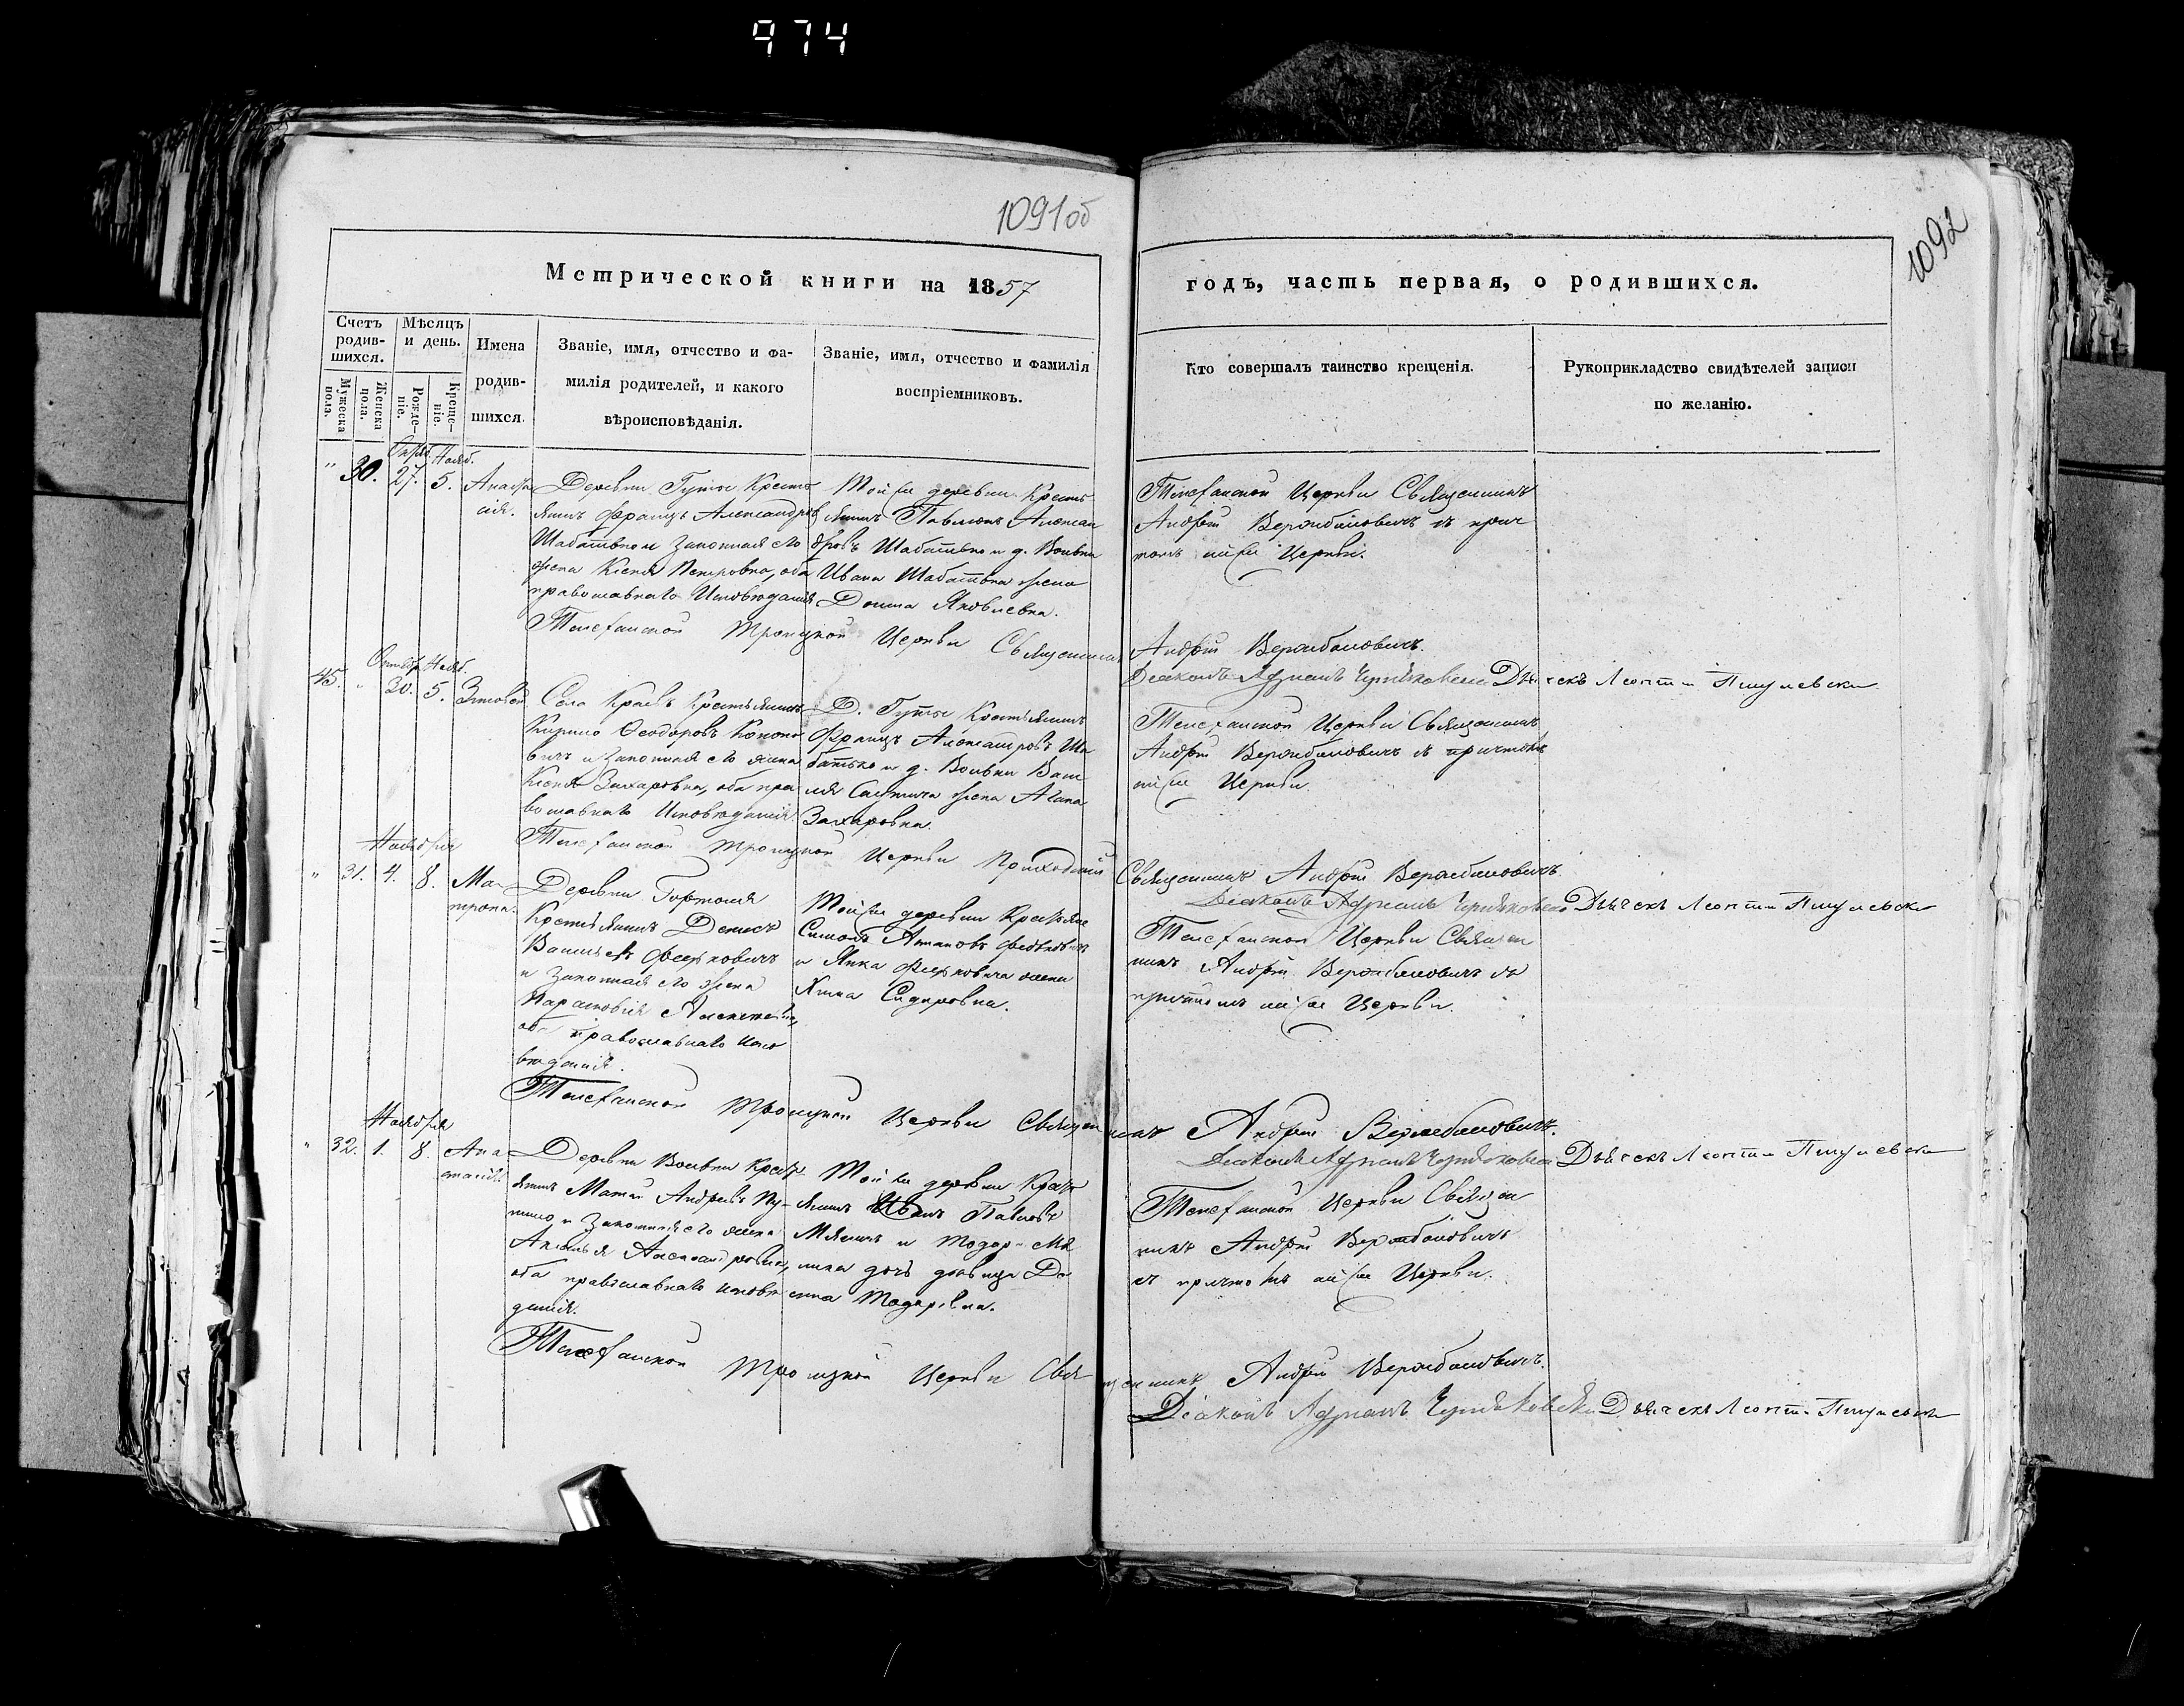 974
1091об
1092
Метрической книги на 1857
годъ, часть первая, о родившихся.
Счетъ родив-шихся.
Мужеска пола.
Женска пола.
Мѣсяцъ и день.
Рожде-ніе.
Креще-ніе.
Имена
родив-
шихся.
Званіе, имя, отчество и фа-
милія родителей, и какого
вѣроисповѣданія.
Званіе, имя, отчество и фамилія
воспріемниковъ.
Кто совершалъ таинство крещенія.
Рукоприкладство свидѣтелей записи
по желанію.
Октяб. Нояб.
" 30. 27. 5. Анаста
сія.
Деревни Гуты Кресть
янинъ Францъ Александров
Шабатько и законная его
жена Ксенія Петровна, оба
православнаго Исповѣданія
Той же деревни Кресть
янинъ Павлюкъ Алексан
дровъ Шабатько и д. Вольки
Ивана Шабатька жена
Домна Яковлевна.
Церкви Священникъ
Андрей Вержбиловичъ съ прич
томъ сей же Церкви.
Троицкой Церкви Священникъ Андрей Вержбиловичъ.
Діаконъ Адріанъ Дьячекъ Леонтій
Октябр. Нояб.
45. " 30. 5. Зиновій
Села Краевъ Крестьянинъ
Кирило Ѳеодоровъ Конони
вичъ и законная его жена
Ксенія Захаровна, оба пра
вославнаго Исповѣданія
Д. Гуты Крестьянинъ
Францъ Александровъ Ша
батько и д. Вольки Васи
лія жена Агапа
Захаровна.
Церкви Священникъ
Андрей Вержбиловичъ съ причтомъ
сей же Церкви.
Троицкой Церкви Приходскій Священникъ Андрей Вержбиловичъ.
Діаконъ Адріанъ Дьячекъ Леонтій
Ноября
" 31. 4. 8. Ма-
трона.
Деревни Гортоля
Крестьянинъ Денисъ
Васильевъ Федьковичъ
и законная его жена
Парасковія Алексѣевна,
оба православнаго Испо
вѣданія.
Той же деревни Крестьяне
Симонъ Федьковичъ
и Янка Федьковича жена
Хима Сидоровна.
Церкви Священ
никъ Андрей Вержбиловичъ съ
причтомъ сей же Церкви.
Троицкой Церкви Священникъ Андрей Вержбиловичъ.
Діаконъ Адріанъ Дьячекъ Леонтій
Ноября
" 32. 1. 8. Ана
стасія.
Деревни Вольки Кресть
янинъ Матѳей Андреевъ
и законная его жена
Акилина Александровна,
оба православнаго исповѣ
данія.
Той же деревни Кресть
янинъ Иванъ Павловъ
и Тодора
дочь дѣвица До
мна Тодоровна.
Церкви Священ
никъ Андрей Вержбиловичъ
съ причтомъ сей же Церкви.
Троицкой Церкви Священникъ Андрей Вержбиловичъ.
Діаконъ Адріанъ Дьячекъ Леонтій